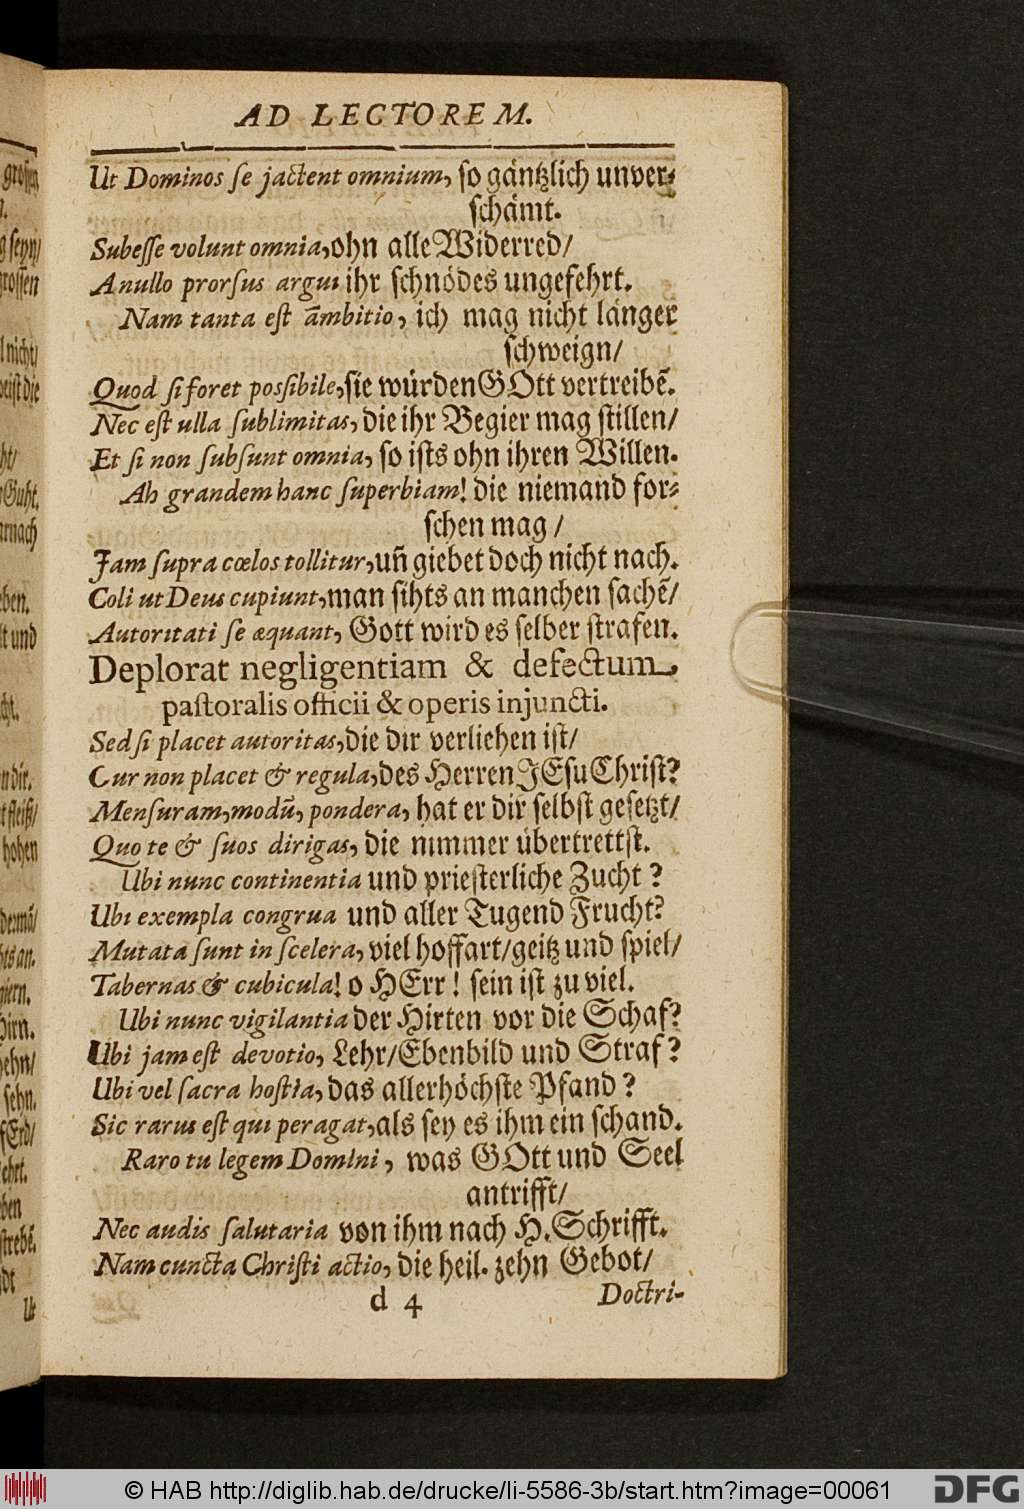 AD LECTOREM.
Ut Dominos ſe jactent omnium, ſo gäntzlich unver⸗
ſchämt.
Subeſſe volunt omnia, ohn alle Widerred/
A nullo prorſus argui ihr ſchnödes ungefehrt.
Nam tanta eſt ãmbitio, ich mag nicht länger
ſchweign/
Quod ſi foret poſsibile, ſie würden GOtt vertreibẽ.
Nec eſt ulla ſublimitas, die ihr Begier mag ſtillen/
Et ſi non ſubſunt omnia, ſo iſts ohn ihren Willen.
Ah grandem hanc ſuperbiam! die niemand for⸗
ſchen mag /
Jam ſupra cœlos tollitur, uñ giebet doch nicht nach.
Coli ut Deus cupiunt, man ſihts an manchen ſachẽ/
Autoritati ſe æquant, Gott wird es ſelber ſtrafen.
Deplorat negligentiam & defectum
paſtoralis officii & operis injuncti.
Sed ſi placet autoritas, die dir verliehen iſt/
Cur non placet & regula, des Herren JEſu Chriſt?
Menſuram, modũ, pondera, hat er dir ſelbſt geſetzt/
Quo te & ſuos dirigas, die nimmer übertrettſt.
Ubi nunc continentia und prieſterliche Zucht ?
Ubi exempla congrua und aller Tugend Frucht?
Mutata ſunt in ſcelera, viel hoffart/geitz und ſpiel/
Tabernas & cubicula! o HErr ! ſein iſt zu viel.
Ubi nunc vigilantia der Hirten vor die Schaf?
Ubi jam eſt devotio, Lehr/Ebenbild und Straf ?
Ubi vel ſacra hoſtia, das allerhöchſte Pfand ?
Sic rarus eſt qui peragat, als ſey es ihm ein ſchand.
Raro tu legem Domini, was GOtt und Seel
antrifft/
Nec audis ſalutaria von ihm nach H. Schrifft.
Nam cuncta Chriſti actio, die heil. zehn Gebot/
d 4
Doctri-
© HAB http://diglib.hab.de/drucke/li-5586-3b/start.htm?image=00061
DFG